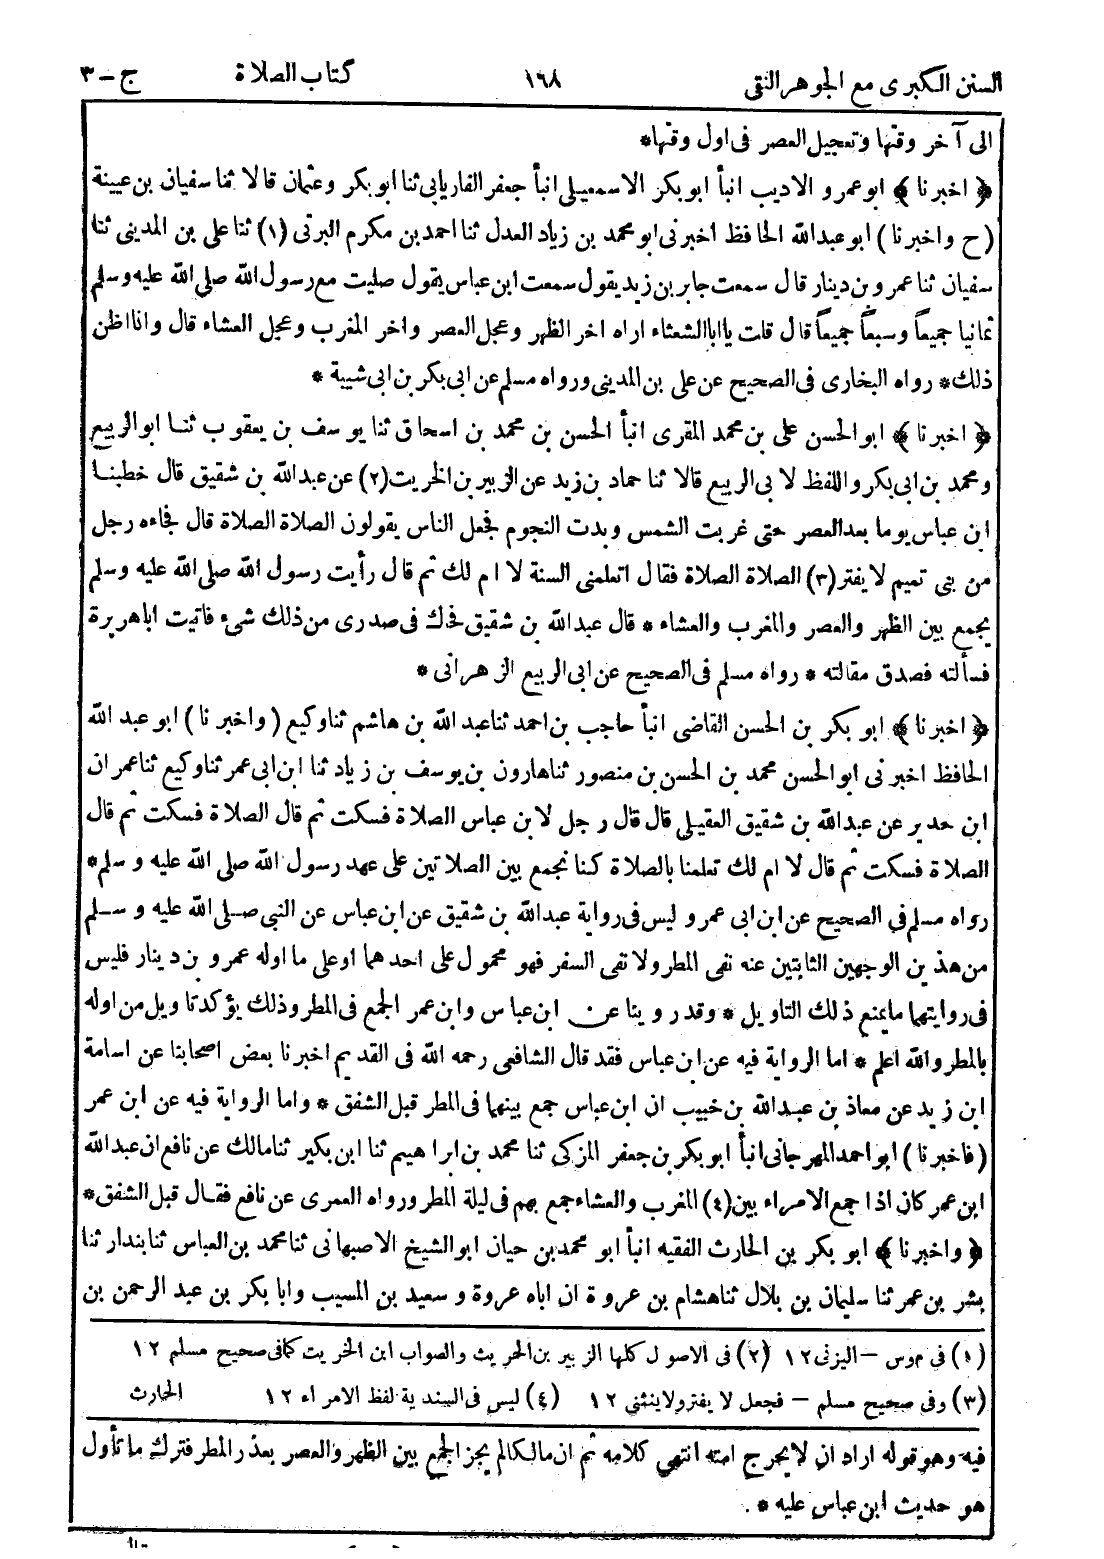 السنن الكبرى مع الجوهر النقى ١٦٨ كتاب الصلاة ج – ٣
الى آخر وقتها وتعجيل العصر فى اول وقتها*
﴿ اخبرنا ﴾ ابو عمرو الاديب انبأ ابو بكر الاسمعيلى انبأ جعفر الفاريابى ثنا ابو بكر وعثمان قالا ثنا سفيان بن عيينة
(ح واخبرنا) ابو عبدالله الحافظ اخبرنى ابو محمد بن زياد العدل ثنا احمد بن مكرم البرتى (١) ثنا على بن المدينى ثنا
سفيان ثنا عمرو بن دينار قال سمعت جابر بن زيد يقول سمعت ابن عباس يقول صليت مع رسول الله صلى الله عليه وسلم
ثمانيا جميعاً وسبعاً جميعاً قال قلت يا ابا الشعثاء اراه اخر الظهر وعجل العصر واخر المغرب وعجل العشاء قال وانا اظن
ذلك* رواه البخارى فى الصحيح عن على بن المدينى ورواه مسلم عن ابى بكر بن ابى شيبة *
﴿ اخبرنا ﴾ ابو الحسن على بن محمد المقرى انبأ الحسن بن محمد بن اسحاق ثنا يوسف بن يعقوب ثنا ابو الربيع
ومحمد بن ابى بكر واللفظ لابى الربيع قالا ثنا حماد بن زيد عن الزبير بن الخريت (٢) عن عبدالله بن شقيق قال خطبنا
ابن عباس يوما بعد العصر حتى غربت الشمس وبدت النجوم فجعل الناس يقولون الصلاة الصلاة قال فجاءه رجل
من بنى تميم لا يفتر (٣) الصلاة الصلاة فقال اتعلمنى السنة لا ام لك ثم قال رأيت رسول الله صلى الله عليه وسلم
يجمع بين الظهر والعصر والمغرب والعشاء * قال عبدالله بن شقيق فحاك فى صدرى من ذلك شىء فاتيت ابا هريرة
فسألته فصدق مقالته * رواه مسلم فى الصحيح عن ابى الربيع الزهرانى *
﴿ اخبرنا ﴾ ابو بكر بن الحسن القاضى انبأ حاجب بن احمد ثنا عبد الله بن هاشم ثنا وكيع (واخبرنا) ابو عبد الله
الحافظ اخبرنى ابو الحسن محمد بن الحسن بن منصور ثنا هارون بن يوسف بن زياد ثنا ابن ابى عمر ثنا وكيع ثنا عمران
ابن حدير عن عبدالله بن شقيق العقيلى قال قال رجل لابن عباس الصلاة فسكت ثم قال الصلاة فسكت ثم قال
الصلاة فسكت ثم قال لا ام لك تعلمنا بالصلاة كنا نجمع بين الصلاتين على عهد رسول الله صلى الله عليه وسلم*
رواه مسلم فى الصحيح عن ابن ابى عمر وليس فى رواية عبدالله بن شقيق عن ابن عباس عن النبى صلى الله عليه وسلم
من هذين الوجهين الثابتين عنه نفى المطر ولا نفى السفر فهو محمول على احدهما او على ما اوله عمرو بن دينار فليس
فى روايتهما ما يمنع ذلك التاويل * وقد روينا عن ابن عباس وابن عمر الجمع فى المطر وذلك يؤكد تاويل من اوله
بالمطر والله اعلم * اما الرواية فيه عن ابن عباس فقد قال الشافعى رحمه الله فى القديم اخبرنا بعض اصحابنا عن اسامة
ابن زيد عن معاذ بن عبدالله بن خبيب ان ابن عباس جمع بينهما فى المطر قبل الشفق * واما الرواية فيه عن ابن عمر
(فاخبرنا) ابو احمد المهرجانى انبأ ابو بكر بن جعفر المزكى ثنا محمد بن ابراهيم ثنا ابن بكير ثنا مالك عن نافع ان عبدالله
ابن عمر كان اذا جمع الامراء بين (٤) المغرب والعشاء جمع بهم فى ليلة المطر ورواه العمرى عن نافع فقال قبل الشفق*
﴿ واخبرنا ﴾ ابو بكر بن الحارث الفقيه انبأ ابو محمد بن حيان ابو الشيخ الاصبهانى ثنا محمد بن العباس ثنا بندار ثنا
بشر بن عمر ثنا سليمان بن بلال ثنا هشام بن عروة ان اباه عروة وسعيد بن المسيب وابا بكر بن عبد الرحمن بن
(١) فى موس – اليزنى ١٢ (٢) فى الاصول كلها الزبير بن الحريث والصواب ابن الخريت كما فى صحيح مسلم ١٢
(٣) وفى صحيح مسلم – فجعل لا يفتر ولا ينثنى ١٢ (٤) ليس فى السندية لفظ الامراء ١٢ الحارث
فيه وهو قوله اراد ان لا يحرج امته انتهى كلامه ثم ان مالكا لم يجز الجمع بين الظهر والعصر بعذر المطر فترك ما تأول
هو حديث ابن عباس عليه *